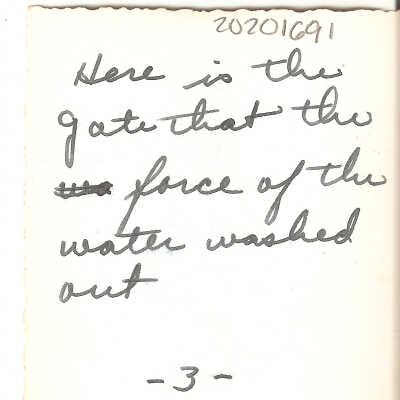 20201691
Here is the
gate that the
force of the
water washed
out
-3-